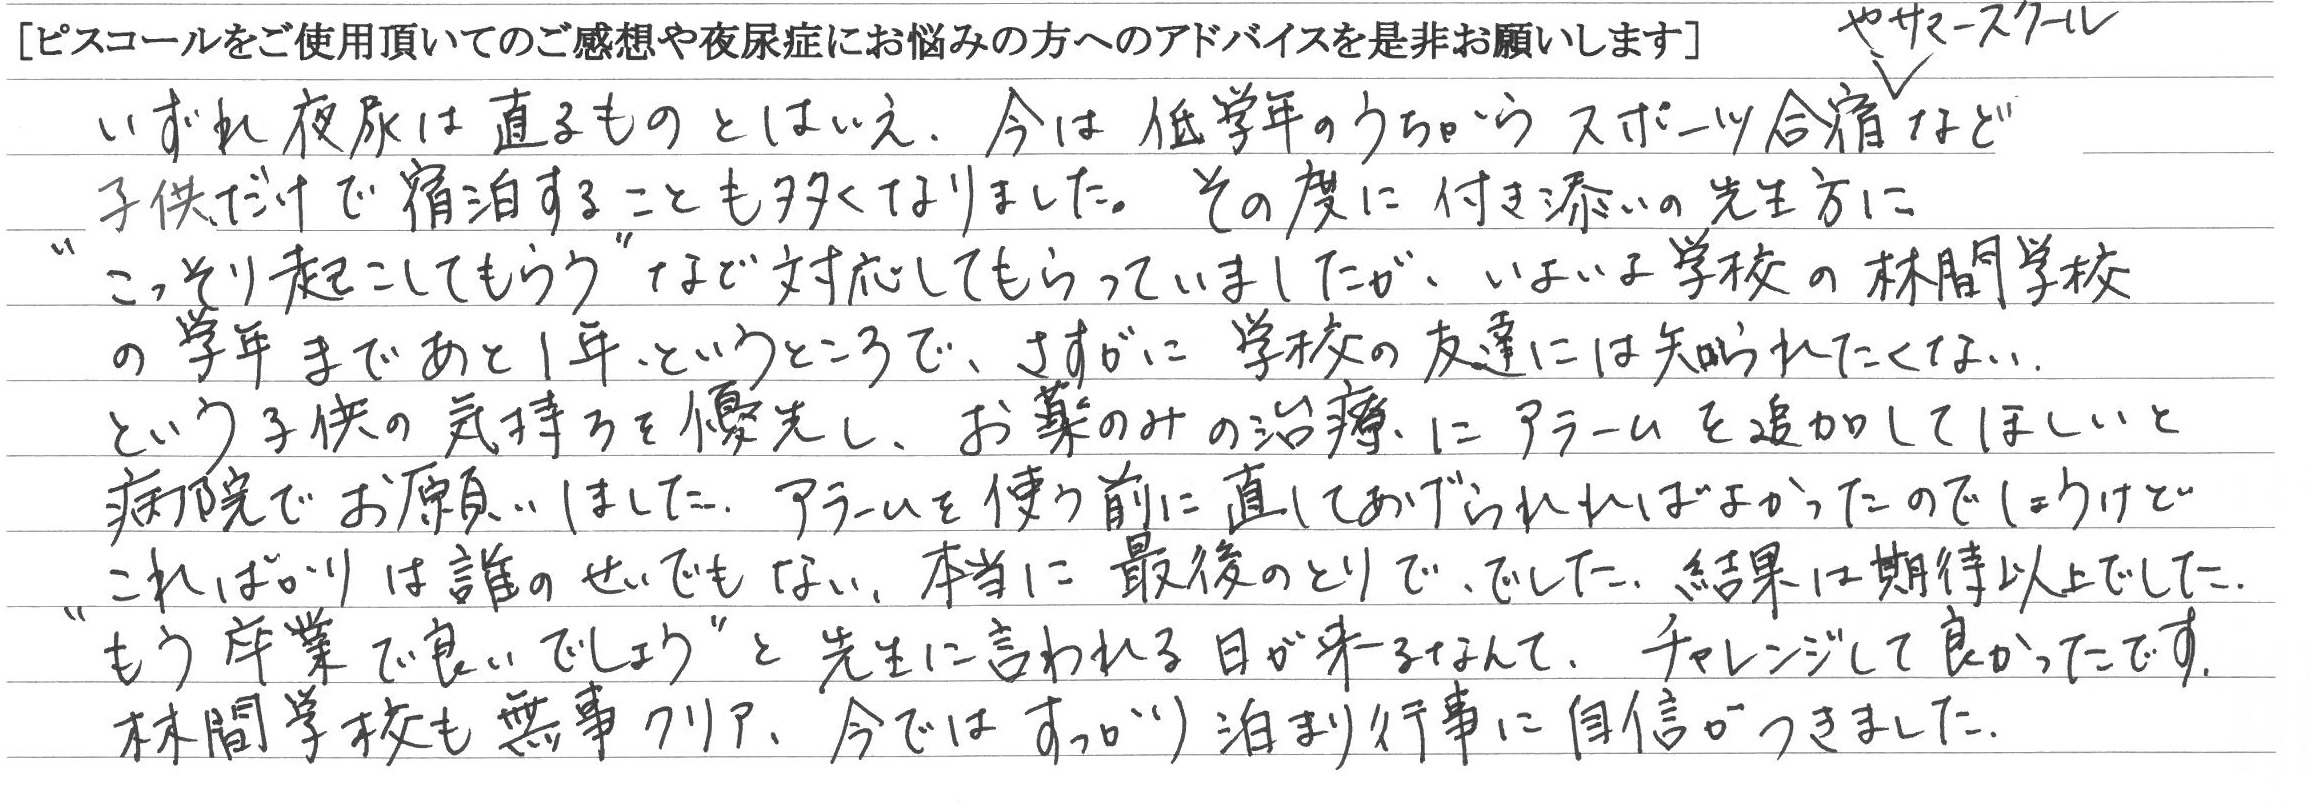 [ピスコールをご使用頂いてのご感想や夜尿症にお悩みの方へのアドバイスを是非お願いします]
やサマースクール
いずれ夜尿は直るものとはいえ、今は低学年のうちからスポーツ合宿など
子供だけで宿泊することも多くなりました。その度に付き添いの先生方に
"こっそり起こしてもらう"など対応してもらっていましたが、いよいよ学校の林間学校
の学年まであと1年、というところで、さすがに学校の友達には知られたくない、
という子供の気持ちを優先し、お薬のみの治療にアラームを追加してほしいと
病院でお願いしました。アラームを使う前に直してあげられればよかったのでしょうけど
こればかりは誰のせいでもない、本当に最後のとりで、でした。結果は期待以上でした。
"もう卒業で良いでしょう"と先生に言われる日が来るなんて、チャレンジして良かったです。
林間学校も無事クリア、今ではすっかり泊まり行事に自信がつきました。